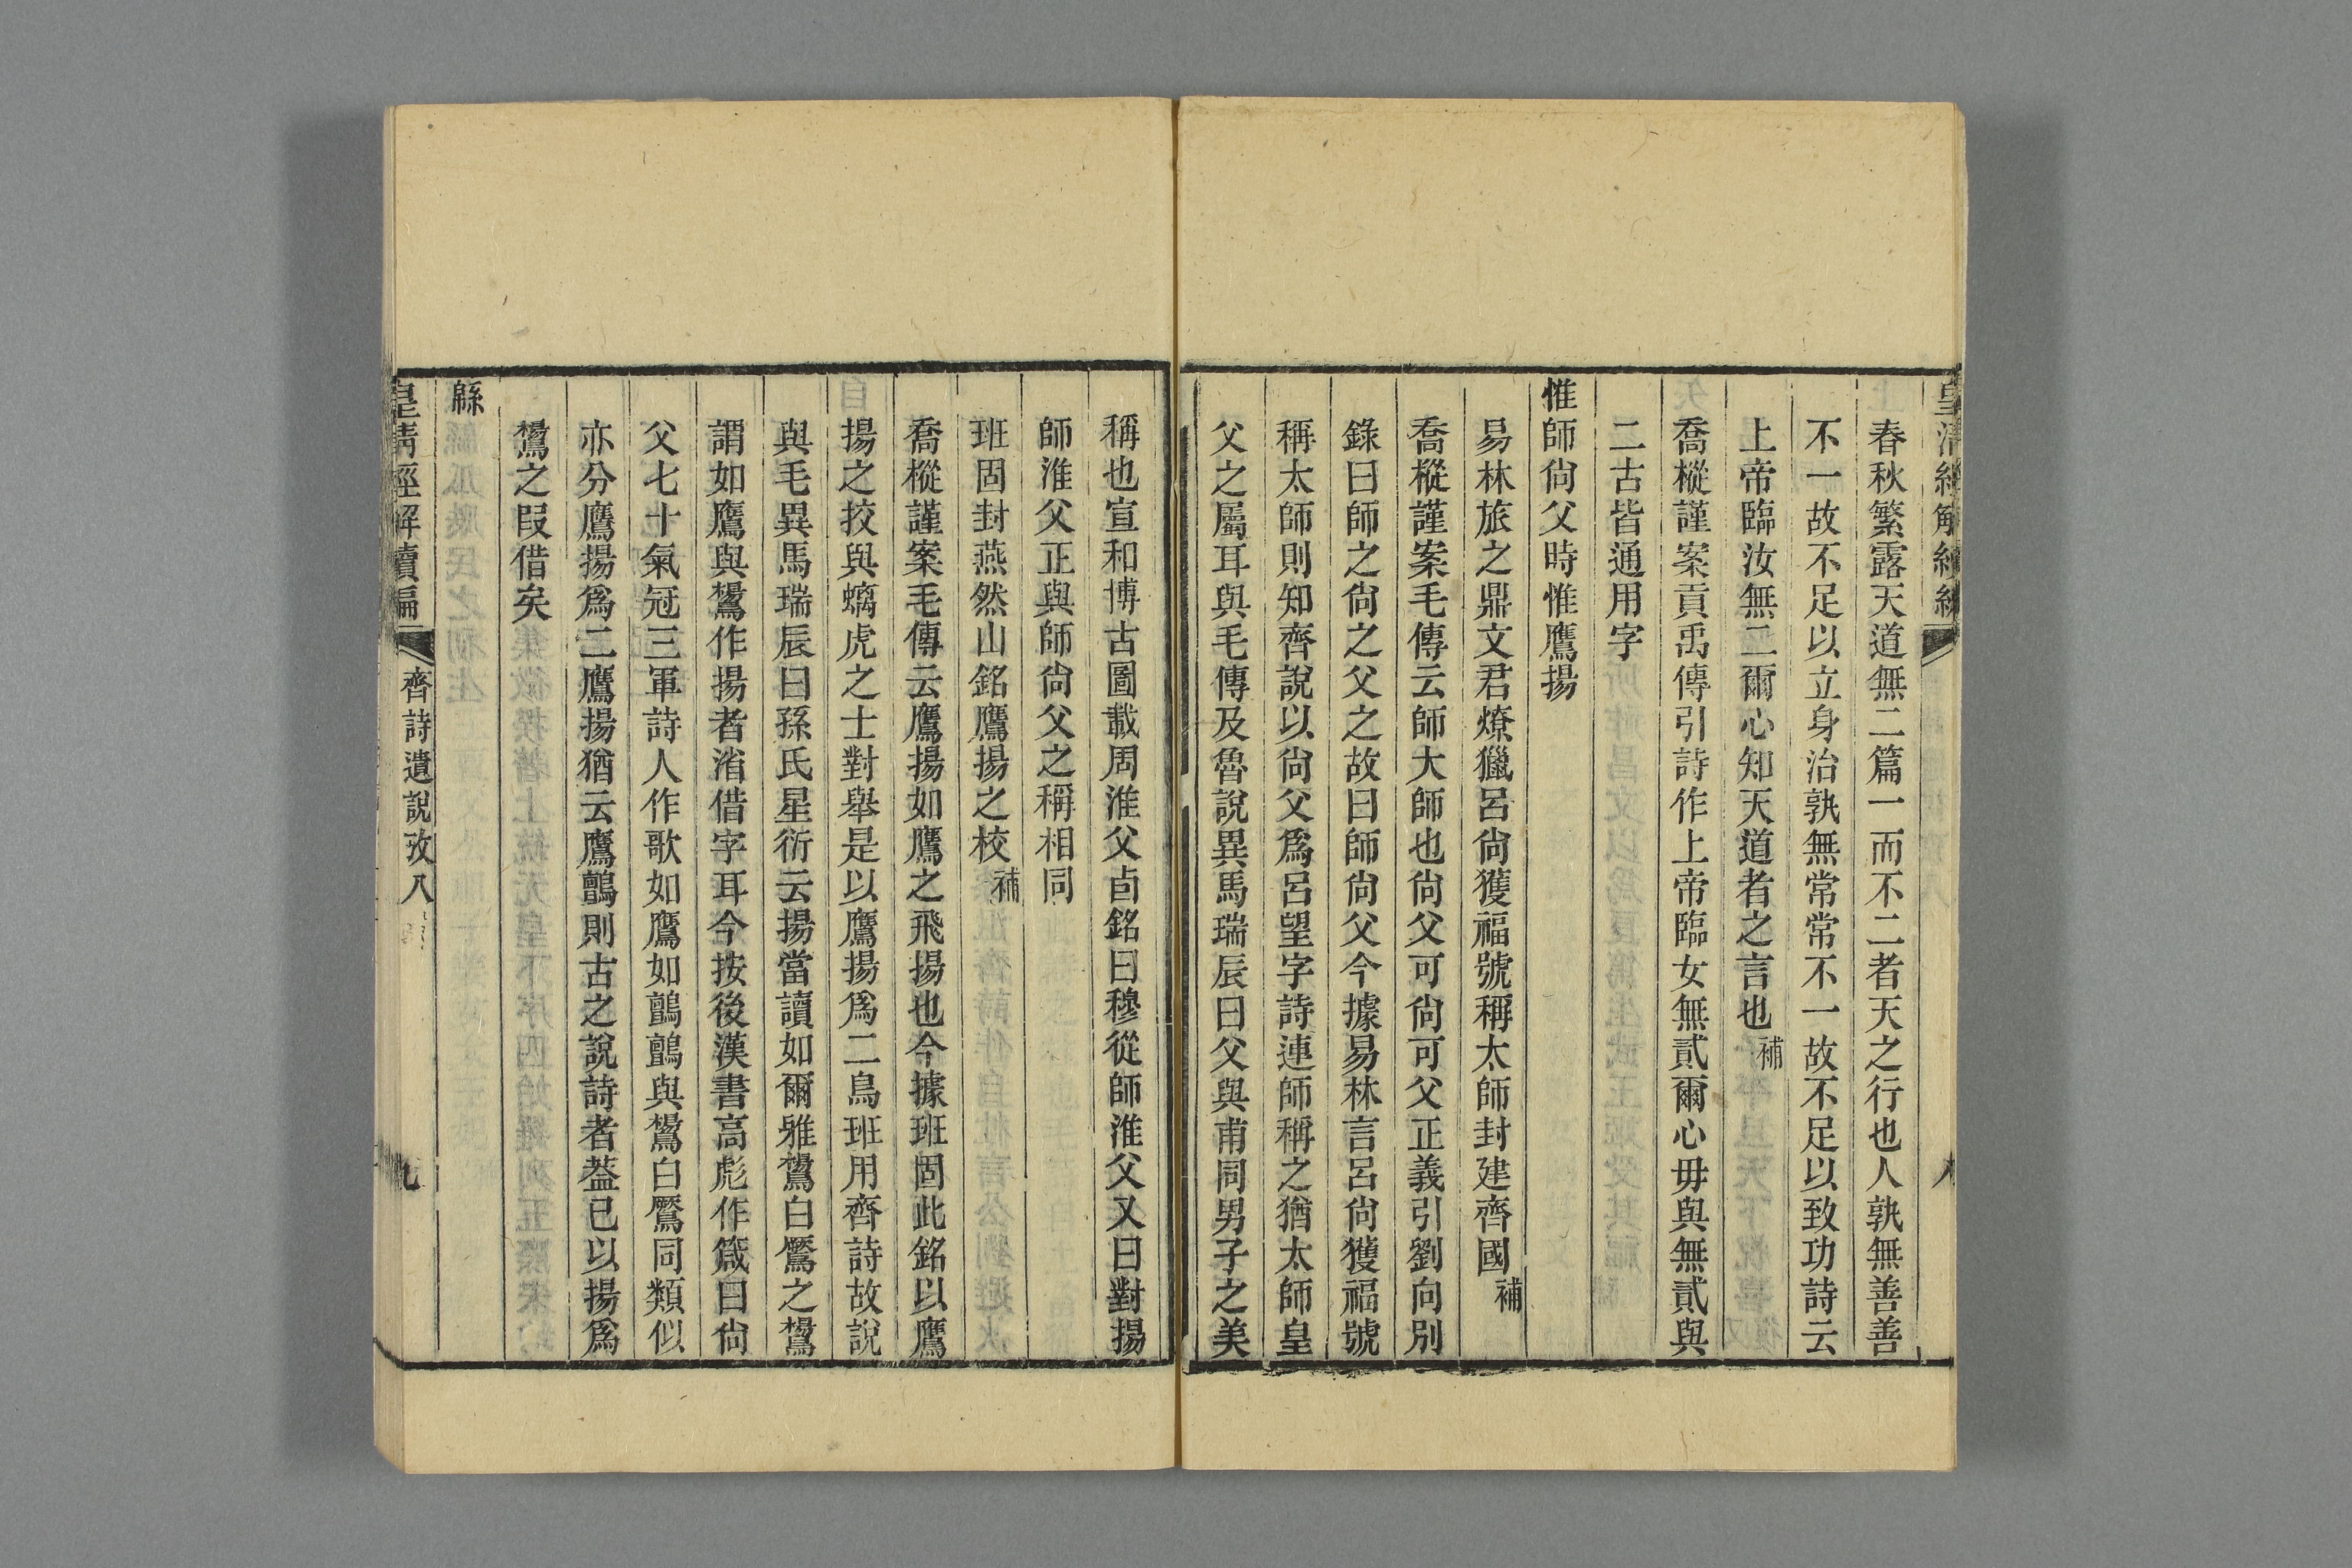 皇清經解續編
八
春秋繁露天道無二篇一而不二者天之行也人孰無善善
不一故不足以立身治孰無常常不一故不足以致功詩云
上帝臨汝無二爾心知天道者之言也補
喬樅謹案貢禹傳引詩作上帝臨女無貳爾心毋與無貳與
二古皆通用字
惟師尙父時惟鷹揚
易林旅之鼎文君燎獵呂尙獲福號稱太師封建齊國補
喬樅謹案毛傳云師大師也尙父可尙可父正義引劉向別
錄曰師之尙之父之故曰師尙父今據易林言呂尙獲福號
稱太師則知齊說以尙父爲呂望字詩連師稱之猶太師皇
父之屬耳與毛傳及魯說異馬瑞辰曰父與甫同男子之美
稱也宣和博古圖載周淮父卣銘曰穆從師淮父又曰對揚
師淮父正與師尙父之稱相同
班固封燕然山銘鷹揚之校補
喬樅謹案毛傳云鷹揚如鷹之飛揚也今據班固此銘以鷹
揚之校與螭虎之士對舉是以鷹揚爲二鳥班用齊詩故說
與毛異馬瑞辰曰孫氏星衍云揚當讀如爾雅鸉白鷢之鸉
謂如鷹與鸉作揚者渻借字耳今按後漢書高彪作箴曰尙
父七十氣冠三軍詩人作歌如鷹如鸇鸇與鸉白鷢同類似
亦分鷹揚爲二鷹揚猶云鷹鸇則古之說詩者葢已以揚爲
鸉之叚借矣
緜
皇清經解續編
齊詩遺說攷八
九